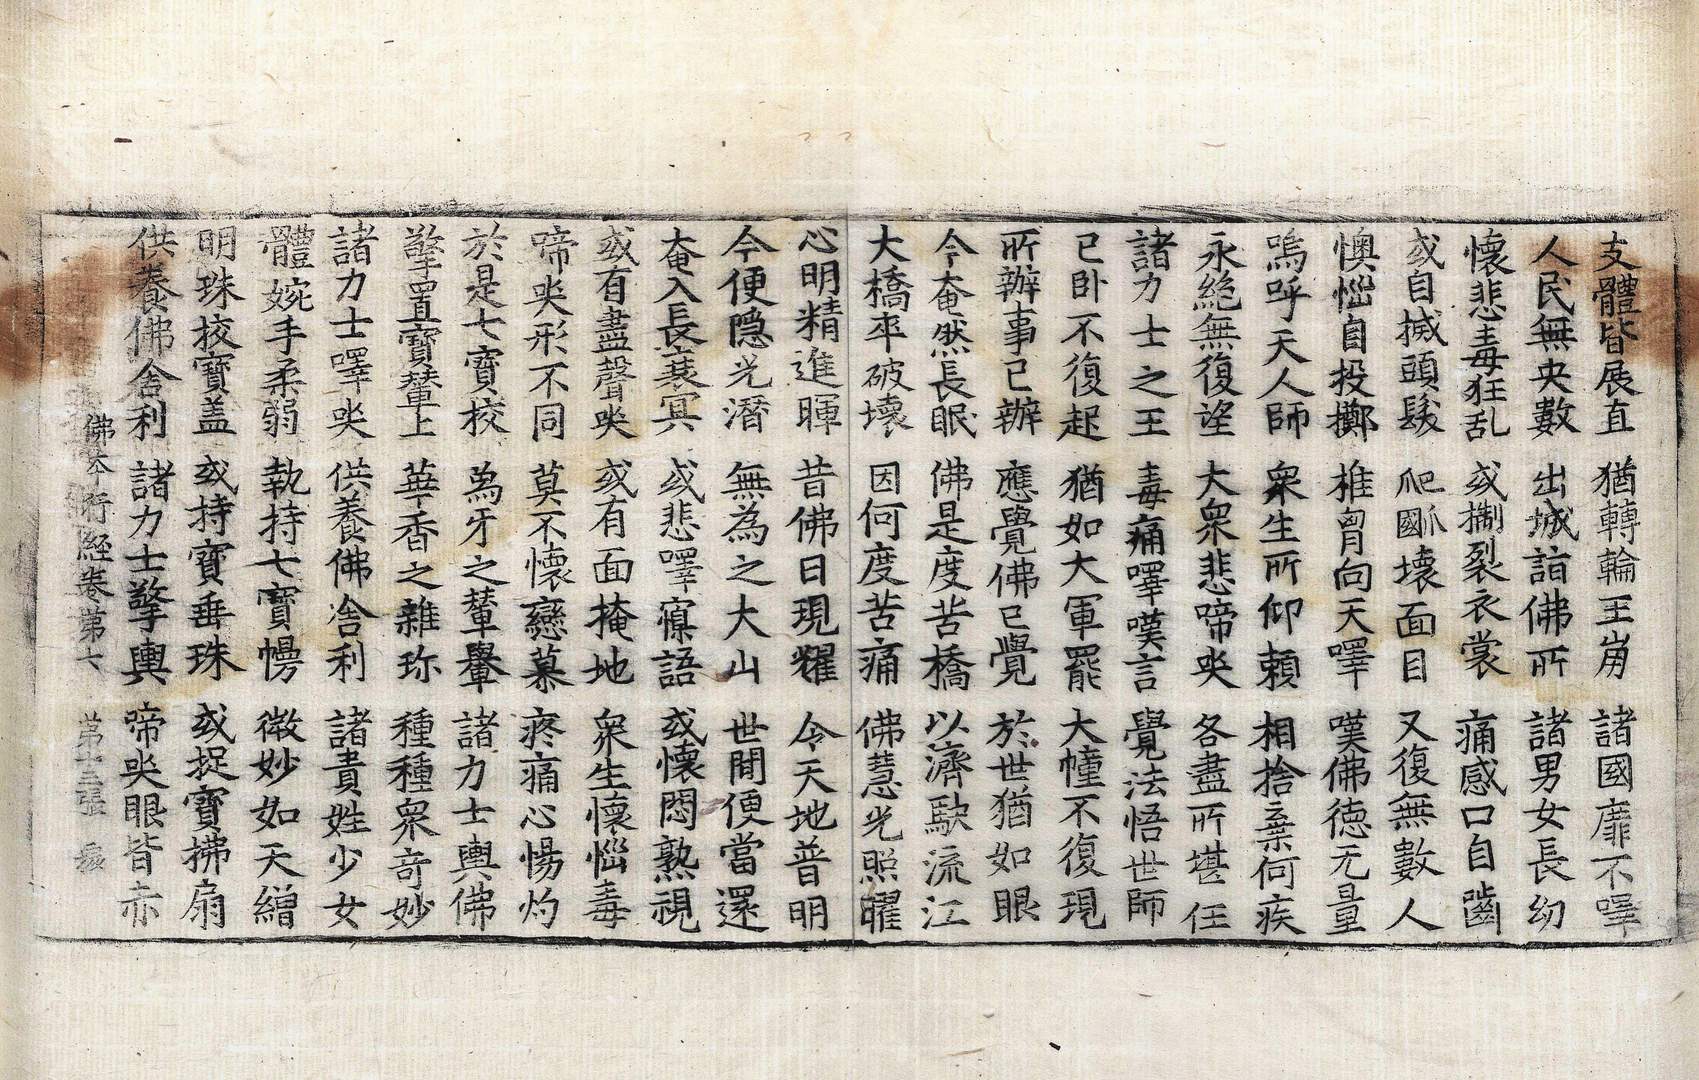 支體皆展直 猶轉輪王崩 諸國靡不嘷
人民無央數 出城詣佛所 諸男女長幼
懷悲毒狂乱 或掣裂衣裳 痛感口自嚙
或自搣頭髮 爬國爪壞面目 又復無數人
懊惱自投擲 椎胷向天嘷 嘆佛德无量
嗚呼天人師 衆生所仰賴 相捨棄何疾
永絶無復望 大衆悲啼哭 各盡所堪任
諸力士之王 毒痛嘷嘆言 覺法悟世師
已卧不復起 猶如大軍罷 大幢不復現
所辦事已辦 應覺佛已覺 於世猶如眼
今奄然長眠 佛是度苦橋 以濟駃流江
大橋卒破壞 因何度苦痛 佛慧光照曜
心明精進暉 昔佛日現耀 今天地普明
今便隱光潛 無為之大山 世間便當還
奄入長衰冥 或悲嘷寱語 或懷悶熟視
或有盡聲哭 或有面掩地 衆生懷惱毒
啼哭形不同 莫不懷戀慕 疼痛心惕灼
於是七寶校 為牙之輦轝 諸力士輿佛
擎置寶輦上 華香之雜珎 種種衆竒妙
諸力士嘷哭 供養佛舍利 諸貴姓少女
體婉手柔弱 執持七寶幔 微妙如天繒
明珠挍寶盖 或持寶垂珠 或捉寶拂扇
供養佛舍利 諸力士擎輿 啼哭眼皆赤
佛本行經卷第七 第十三張